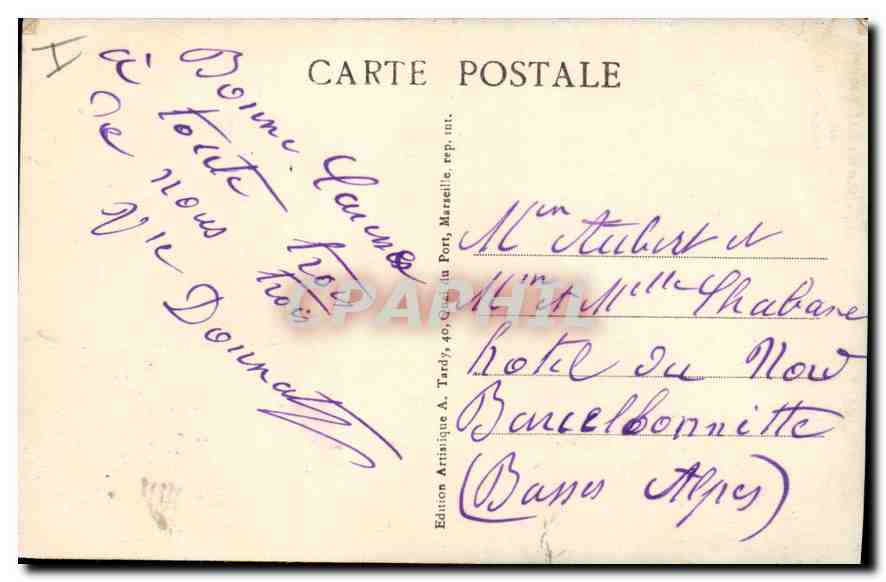 CARTE POSTALE
Bonne Caresses
à toute trois
de nous trois
Vve Donnat
Edition Artistique A. Tardy, 40, Quai du Port, Marseille, rep. int.
Mme Aubert et
Mme et Melle Chabane
hotel du Nord
Barcelbonnitte
(Basses Alpes)
CPAPHIL